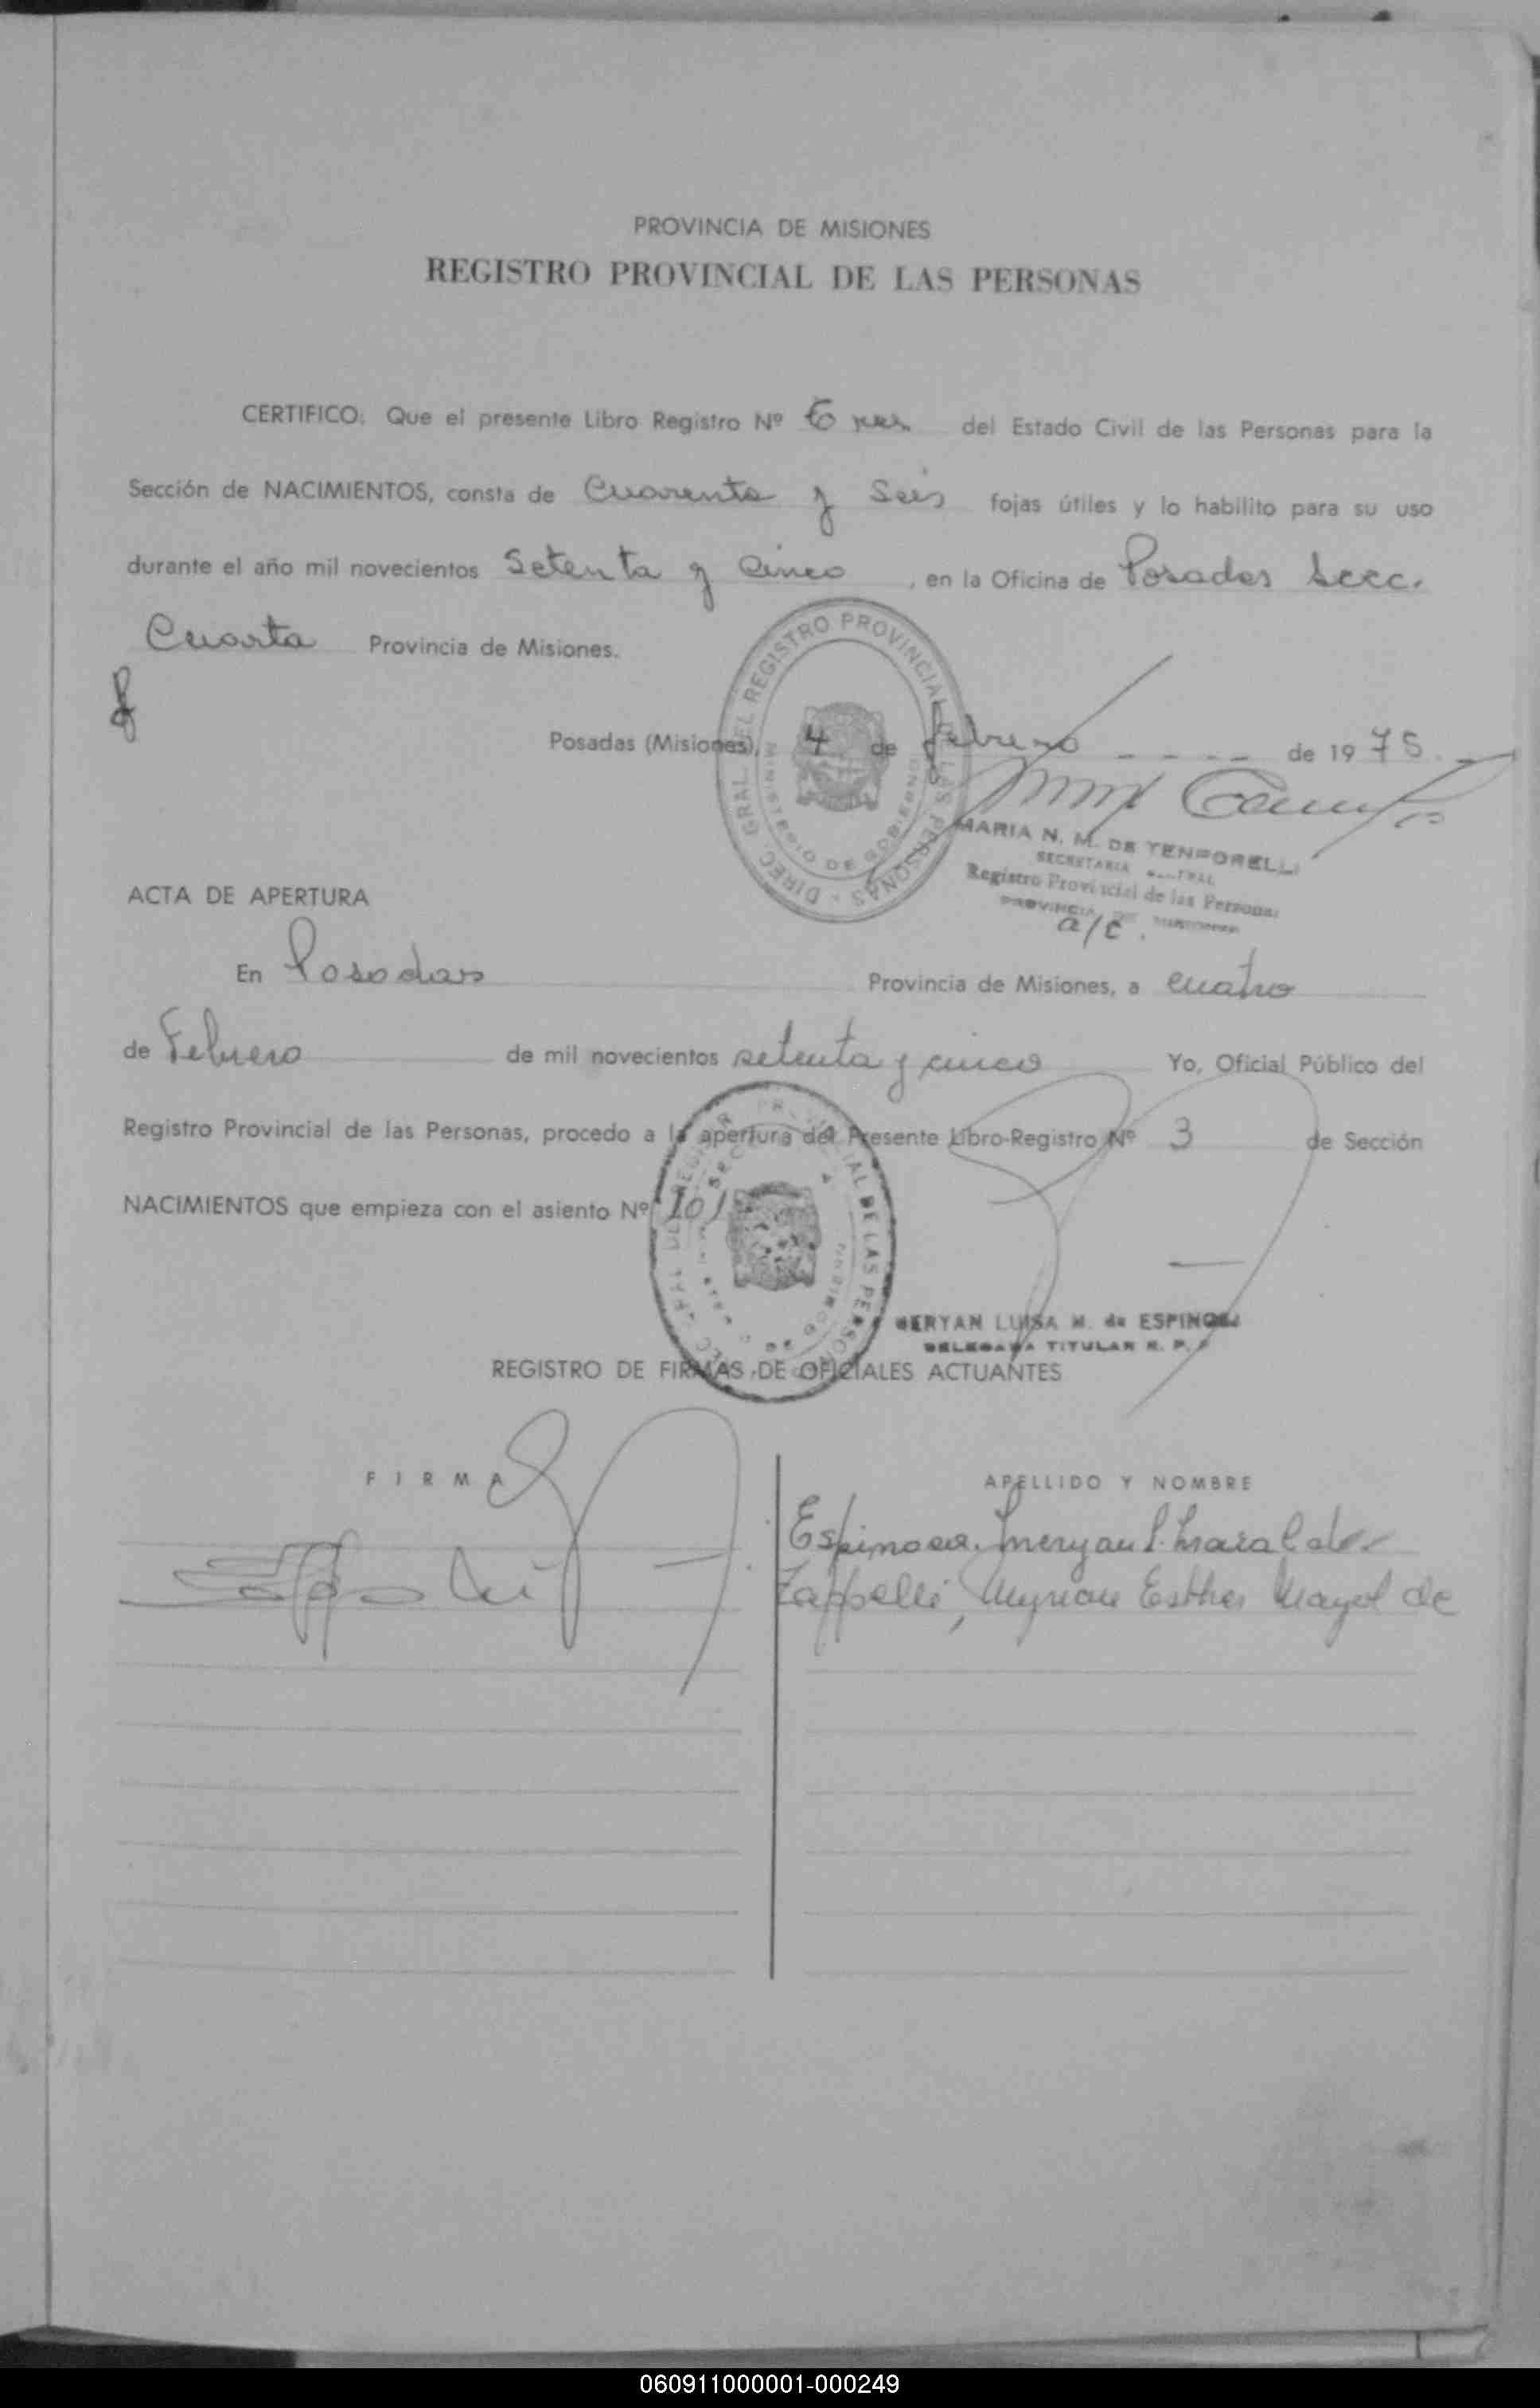 PROVINCIA DE MISIONES
REGISTRO PROVINCIAL DE LAS PERSONAS
CERTIFICO: Que el presente Libro Registro Nº Tres del Estado Civil de las Personas para la
Sección de NACIMIENTOS, consta de Cuarenta y Seis fojas útiles y lo habilito para su uso
durante el año mil novecientos Setenta y Cinco, en la Oficina de Posadas Secc.
Cuarta Provincia de Misiones.
Posadas (Misiones), 4 de febrero _ _ _ _ de 1975.
DIREC. GRAL. DEL REGISTRO PROVINCIAL DE LAS PERSONAS
MINISTERIO DE GOBIERNO
MARIA N. M. DE TEMPORELLI
SECRETARIA
Registro Provincial de las Personas
PROVINCIA DE MISIONES
a/c.
ACTA DE APERTURA
En Posadas Provincia de Misiones, a cuatro
de Febrero de mil novecientos setenta y cinco Yo, Oficial Público del
Registro Provincial de las Personas, procedo a la apertura del Presente Libro-Registro Nº 3 de Sección
NACIMIENTOS que empieza con el asiento Nº 101
MERYAN LUISA M. de ESPINOSA
DELEGADA TITULAR R. P. P.
REGISTRO DE FIRMAS DE OFICIALES ACTUANTES
FIRMA APELLIDO Y NOMBRE
Espinosa, Meryan L. de
Zappelli, Myrian Esther Mayol de
060911000001-000249